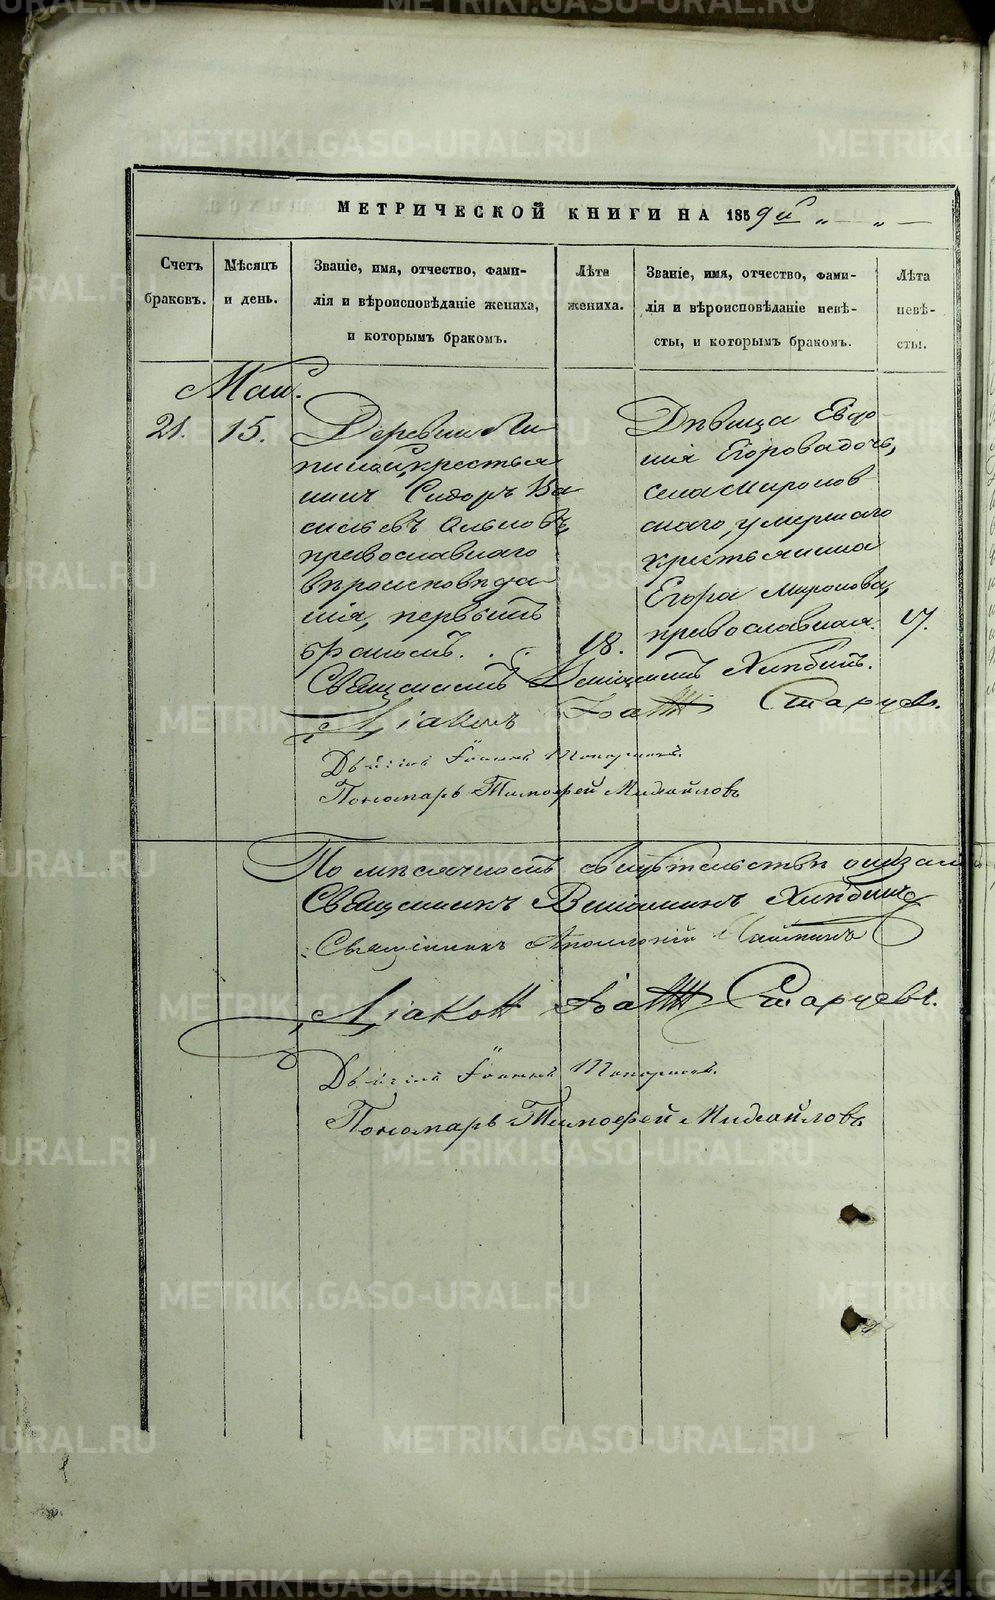 МЕТРИЧЕСКОЙ КНИГИ НА 1859й " — " —
Счетъ браковъ.
Мѣсяцъ и день.
Званіе, имя, отчество, фами-
лія и вѣроисповѣданіе жениха,
и которымъ бракомъ.
Лѣта жениха.
Званіе, имя, отчество, фами-
лія и вѣроисповѣданіе невѣ-
сты, и которымъ бракомъ.
Лѣта невѣ-
сты.
Маія.
21. 15.
Деревни Ли-
пиной, крестья
нинъ Сидоръ Ва
сильевъ
православнаго
вѣроисповѣда-
нія, первымъ
бракомъ. 18.
Дѣвица Евдо-
кія Егорова дочь,
села Миронов
скаго, умершаго
крестьянина
Егора Миронова,
православная. 17.
Священникъ Веніаминъ Хлѣбинъ.
Діаконъ Іоаннъ Старцевъ.
Іоаннъ Топорковъ.
Пономарь Тимофей Михайловъ
По мѣсячномъ свидѣтельствѣ
Священникъ Веніаминъ Хлѣбинъ
Священникъ
Діаконъ Іоаннъ Старцевъ.
Іоаннъ Топорковъ.
Пономарь Тимофей Михайловъ
METRIKI.GASO-URAL.RU